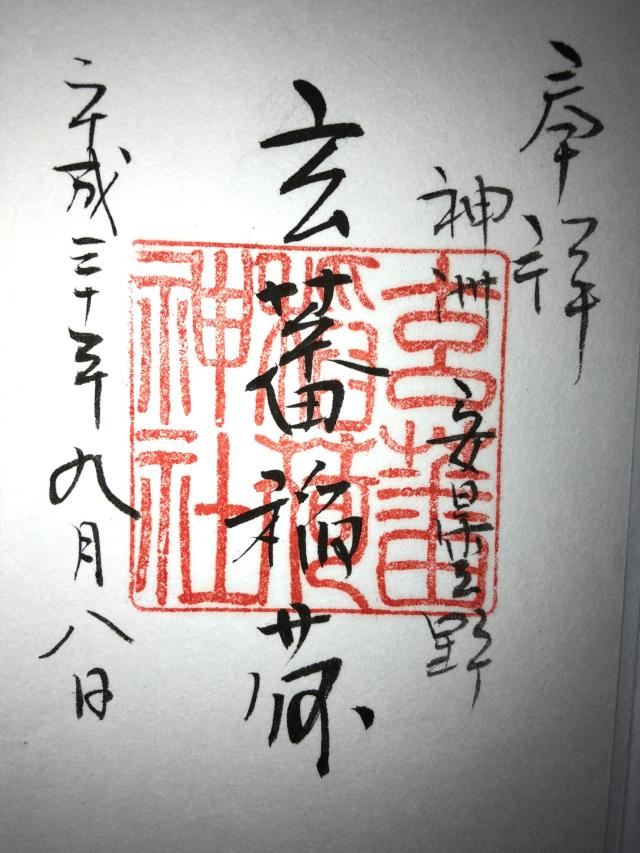 奉拝
神洲 安曇野
玄蕃稲荷
平成三十年九月八日
玄蕃
稲荷
神社